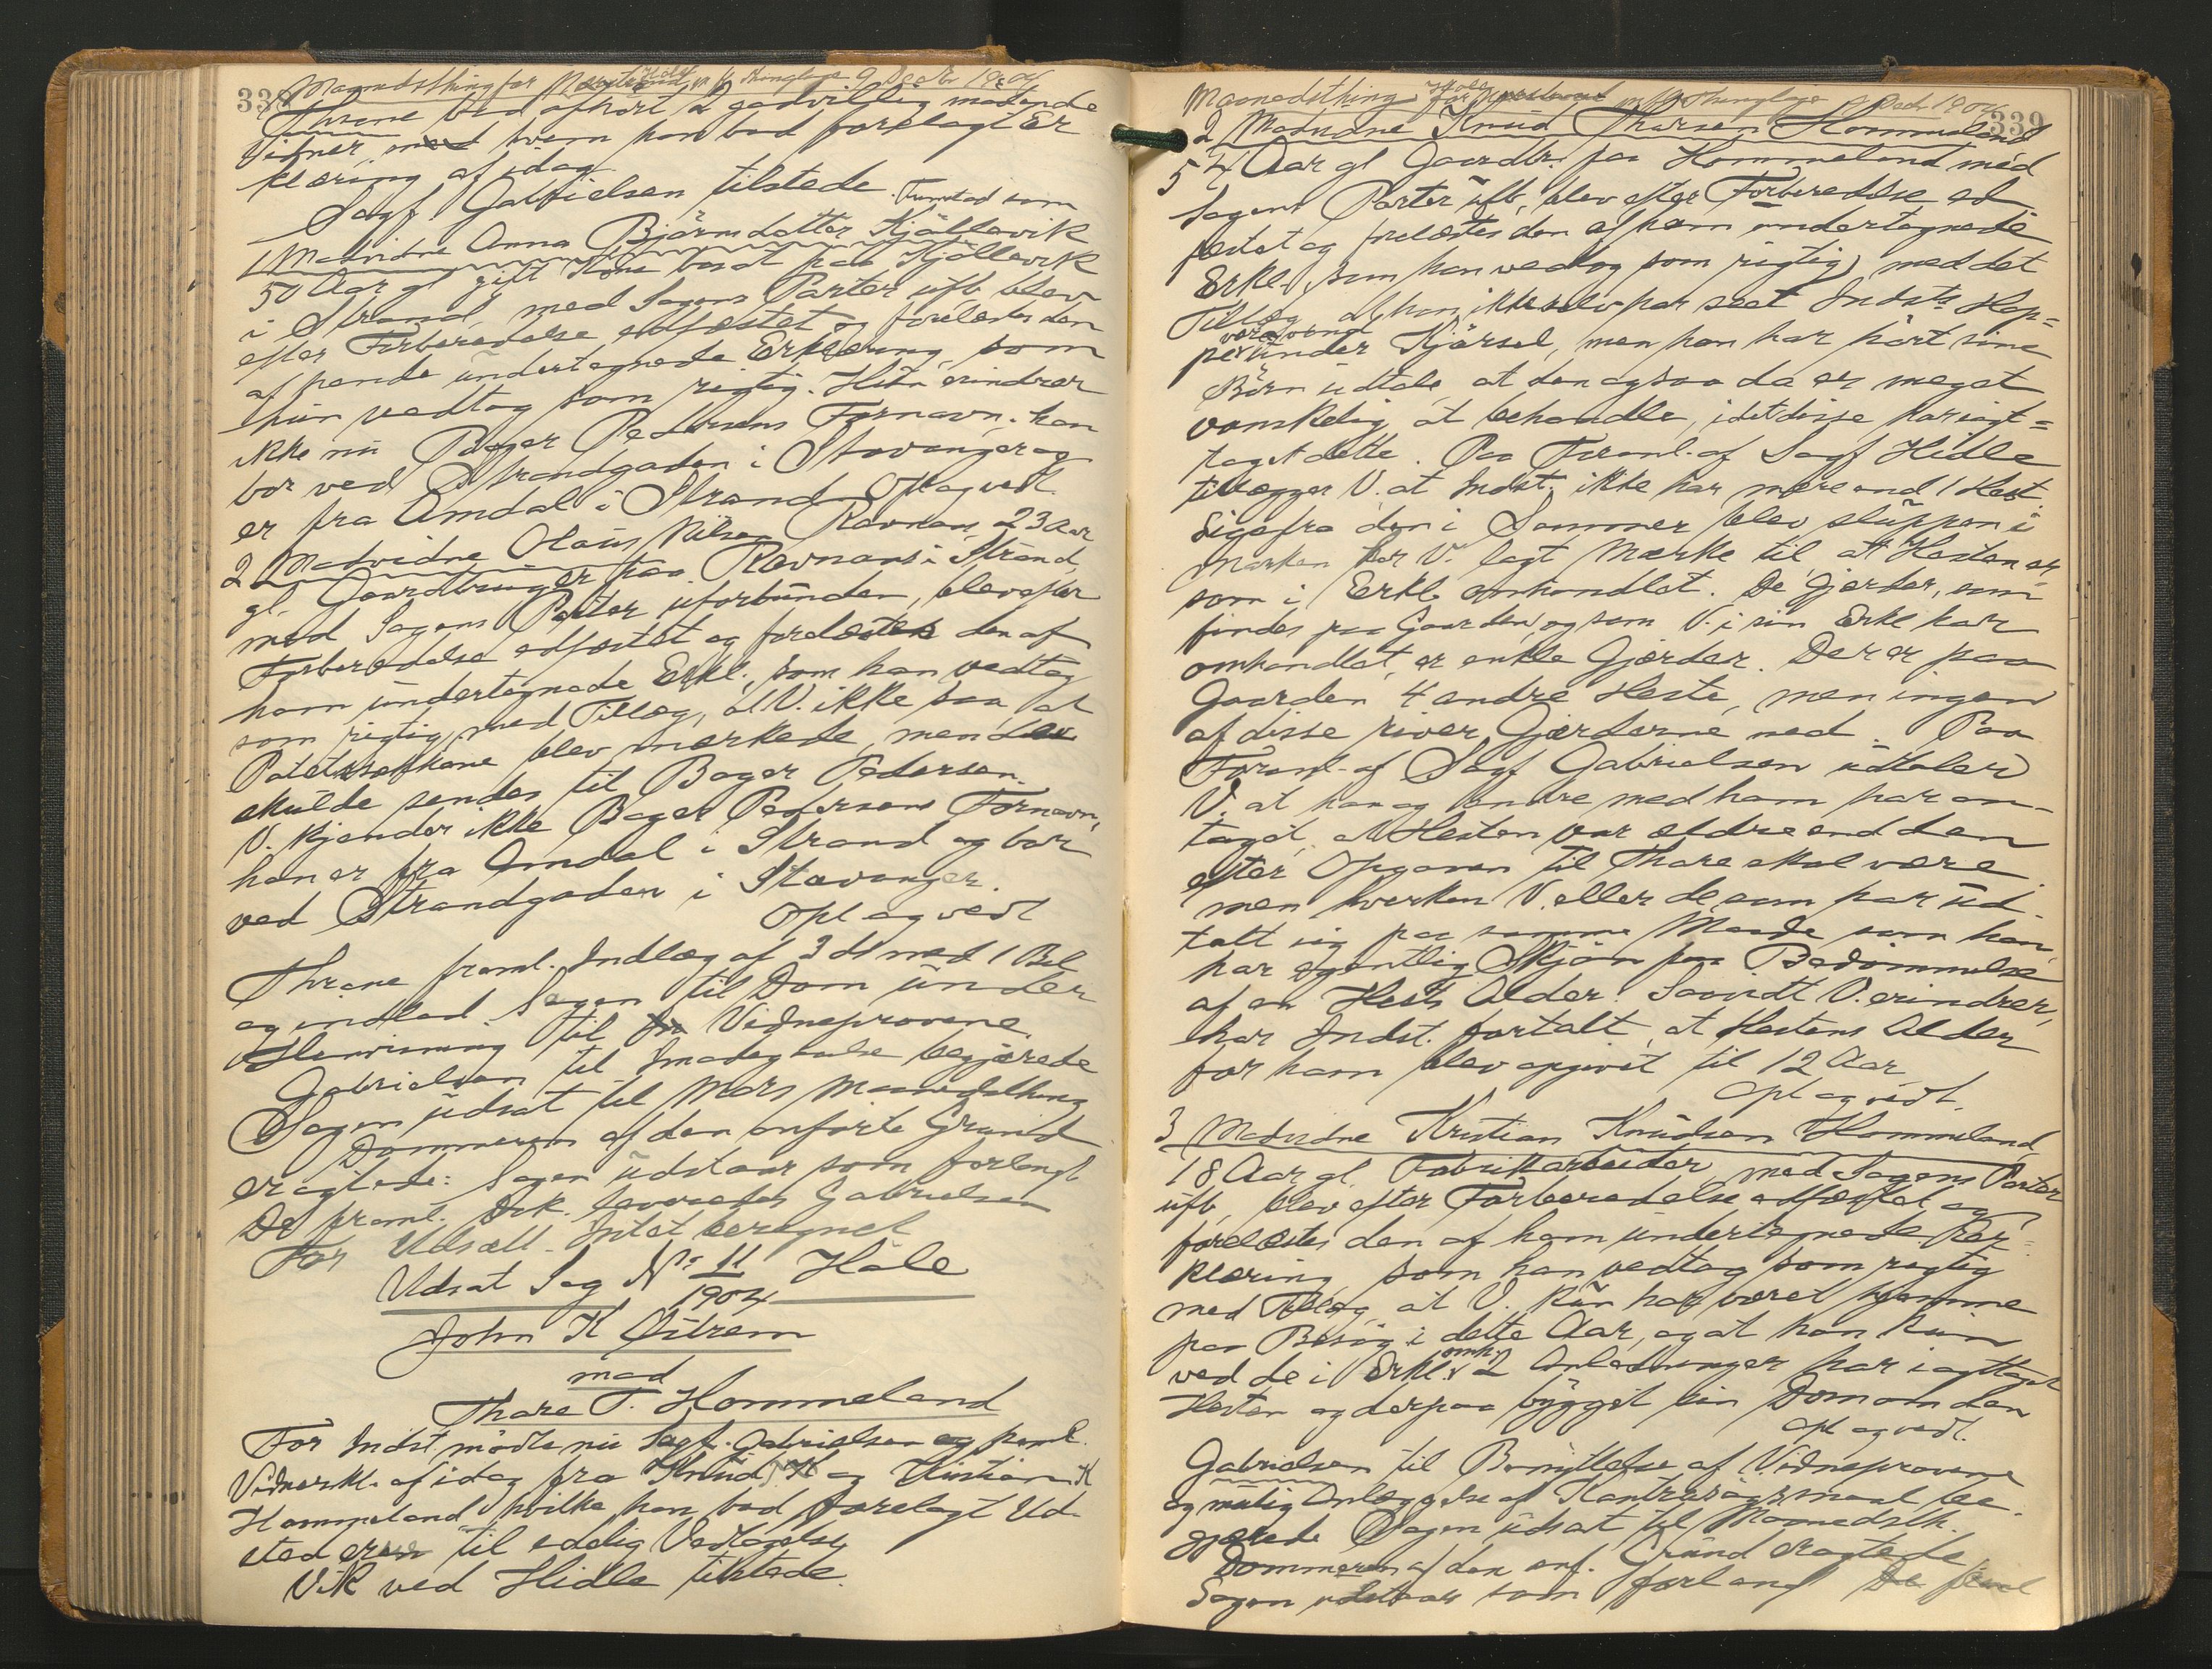 338 Maanedsthing for m. fl. Thinglage 9 Decbr 1904
Thrane bad afhørt 2 godvillig mødende
Vidner, med hvem han bad forelagt Er
klæring af idag.
Sagf. Gabrielsen tilstede. Tumstad som
1 Madvidne Anna Björnsdatter Kjöllevik
50 Aar gl gift Kone bosat paa Kjöllevik
i Strand, med Sagens Parter ufb. blev
efter Forberedelse edfæstet og forelæstes den
af hende undertegnede Erklæring, som
hun vedtog som rigtig. Hun erindrer
ikke nu Bager Pedersens Fornavn. han
bor ved Strandgaden i Stavanger og
er fra Amdal i Strand Opl og vedt.
2 Madvidne Olaus Nilsen Ravnaas, 23 Aar
gl. Gaardbruger paa Ravnaas i Strand,
med Sagens Parter uforbunden, blev efter
Forberedelse edfæstet og forelæstes den af
ham undertegnede Erkl., som han vedtog
som rigtig, med Tillæg, at V. ikke saa at
Potetessækkene blev mærkede, men de
skulde sendes til Bager Pedersen.
V. kjender ikke Bager Pedersens Fornavn,
han er fra Amdal i Strand og bor
ved Strandgaden i Stavanger.
Opl og vedt
Thrane freml. Indlæg af 3 ds med 1 Bil
og indlod Sagen til Dom under
Henvisning til Vidneprovene.
Gabrielsen til Imødegaaelse begjærede
Sagen udsat til Mars Maanedsthing
Dommeren af den anførte Grund
eragtede: Sagen udstaar som forlangt
De freml. Dok. leveredes Gabrielsen
For Udsætt. Intet beregnet
Udsat Sag No 11/1904 Håle
John K Østrem
mod
Thore T. Hommeland
For Indst. mødte nu Sagf. Gabrielsen og freml.
Vidnerkl. af idag fra Knud og Kristian K
Hommeland hvilke han bad forelagt Ud-
stederne til edelig Vedtagelse
VK ved Hidle tilstede.
Maanedsthing for m. fl. Thinglage 9 Dec. 1904 339
2 Madvidne Knud Thorsen Hommeland
54 Aar gl Gaardbr. paa Hommeland med
Sagens Parter ufb, blev efter Forberedelse ed
fæstet og forelæstes den af ham undertegnede
Erkl., som han vedtog som rigtig, med det
Tillæg, at han ikke selv har seet Indsts Hop=
pe under Kjørsel, men han har hørt sine
Børn udtale, at den ogsaa da er meget
vanskelig at behandle, idet disse har iagt=
taget dette. Paa Foranl. af Sagf Hidle
tillægger V. at Indst. ikke har mere end 1 Hest.
Ligefra den i Sommer blev sluppen i
Marken har V. lagt Mærke til, at Hesten er
som i Erkl. omhandlet. De Gjerder, som
findes paa Gaarden, og som V. i sin Erkl har
omhandlet, er enkle Gjerder. Der er paa
Gaarden 4 andre Heste, men ingen
af disse river Gjerderne ned. Paa
Foranl. af Sagf Gabrielsen udtaler
V. at han og andre med ham har an-
taget, at Hesten var ældre end den
efter Opgaven til Thore skal være
men hverken V. eller de som har ud-
talt sig paa samme Maade som han,
har egentlig Skjøn paa Bedömmelse
af en Hests Alder. Saavidt V. erindrer,
har Indst. fortalt, at Hestens Alder
for ham blev opgivet til 12 Aar
Opl og vedt.
3 Madvidne Kristian Knudsen Hommeland,
18 Aar gl. Fabrikarbeider, med Sagens Parter
ufb, blev efter Forberedelse edfæstet og
forelæstes den af ham undertegnede Er=
klæring, som han vedtog som rigtig
med Tillæg, at V. kun har været hjemme
paa Besög i dette Aar, og at han kun
ved de i Erkl. omh. 2 Anledninger har iagttaget
Hesten og derpaa bygget sin Dom om den
Opl og vedt.
Gabrielsen til Benyttelse af Vidneprovene
og mulig Anlæggelse af Kontrasögsmaal be-
gjærede Sagen udsat til Maanedsth.
Dommeren af den anf. Grund eragtede
Sagen udstaar som forlangt De freml